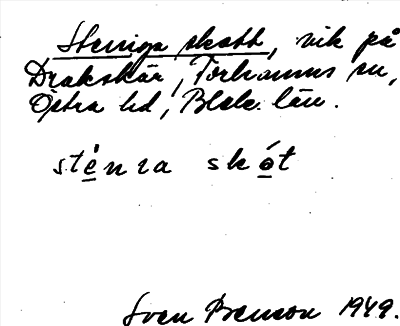 Steniga skatt, vik på
Drakskär, Torhamns sn,
Östra hd, Blek. län.
sténra skót
Sven Benson 1949.